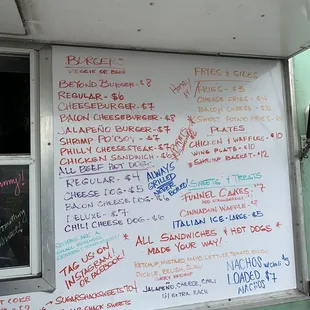 BURGERS
VEGGIE OR BEEF
BEYOND BURGER - $8
REGULAR - $6
CHEESEBURGER - $7
BACON CHEESEBURGER - $8
JALAPEÑO BURGER - $7
SHRIMP PO'BOY - $7
PHILLY CHEESESTEAK - $7
CHICKEN SANDWICH - $6
ALL BEEF HOT DOGS
REGULAR - $4
CHEESE DOG - $5
BACON CHEESE DOG
DELUXE - $7
CHILI CHEESE DOG - $6
ALWAYS
GRILLED
NEVER
BOILED
FRIES & SIDES
FRIES - $3
CHEESE FRIES - $4
BACON CHEESE FRIES
SWEET POTATO FRIES
PLATES
CHICKEN & WAFFLE - $10
WING PLATE - $10
SHRIMP BASKET - $12
SWEETS & TREATS
FUNNEL CAKES - $7
CINNAMON WAFFLE
ITALIAN ICE - LARGE - $5
ALL SANDWICHES & HOT DOGS
MADE YOUR WAY!
KETCHUP, MUSTARD, MAYO, LETTUCE, TOMATO,
PICKLE, RELISH,
CURRY KETCHUP
JALAPEÑO, CHEESE, CHILI
EXTRA EACH
NACHOS
LOADED $7
NACHOS
TAG US ON
INSTAGRAM
OR FACEBOOK!
SUGARSHACKSWEETS
SHACK SWEETS